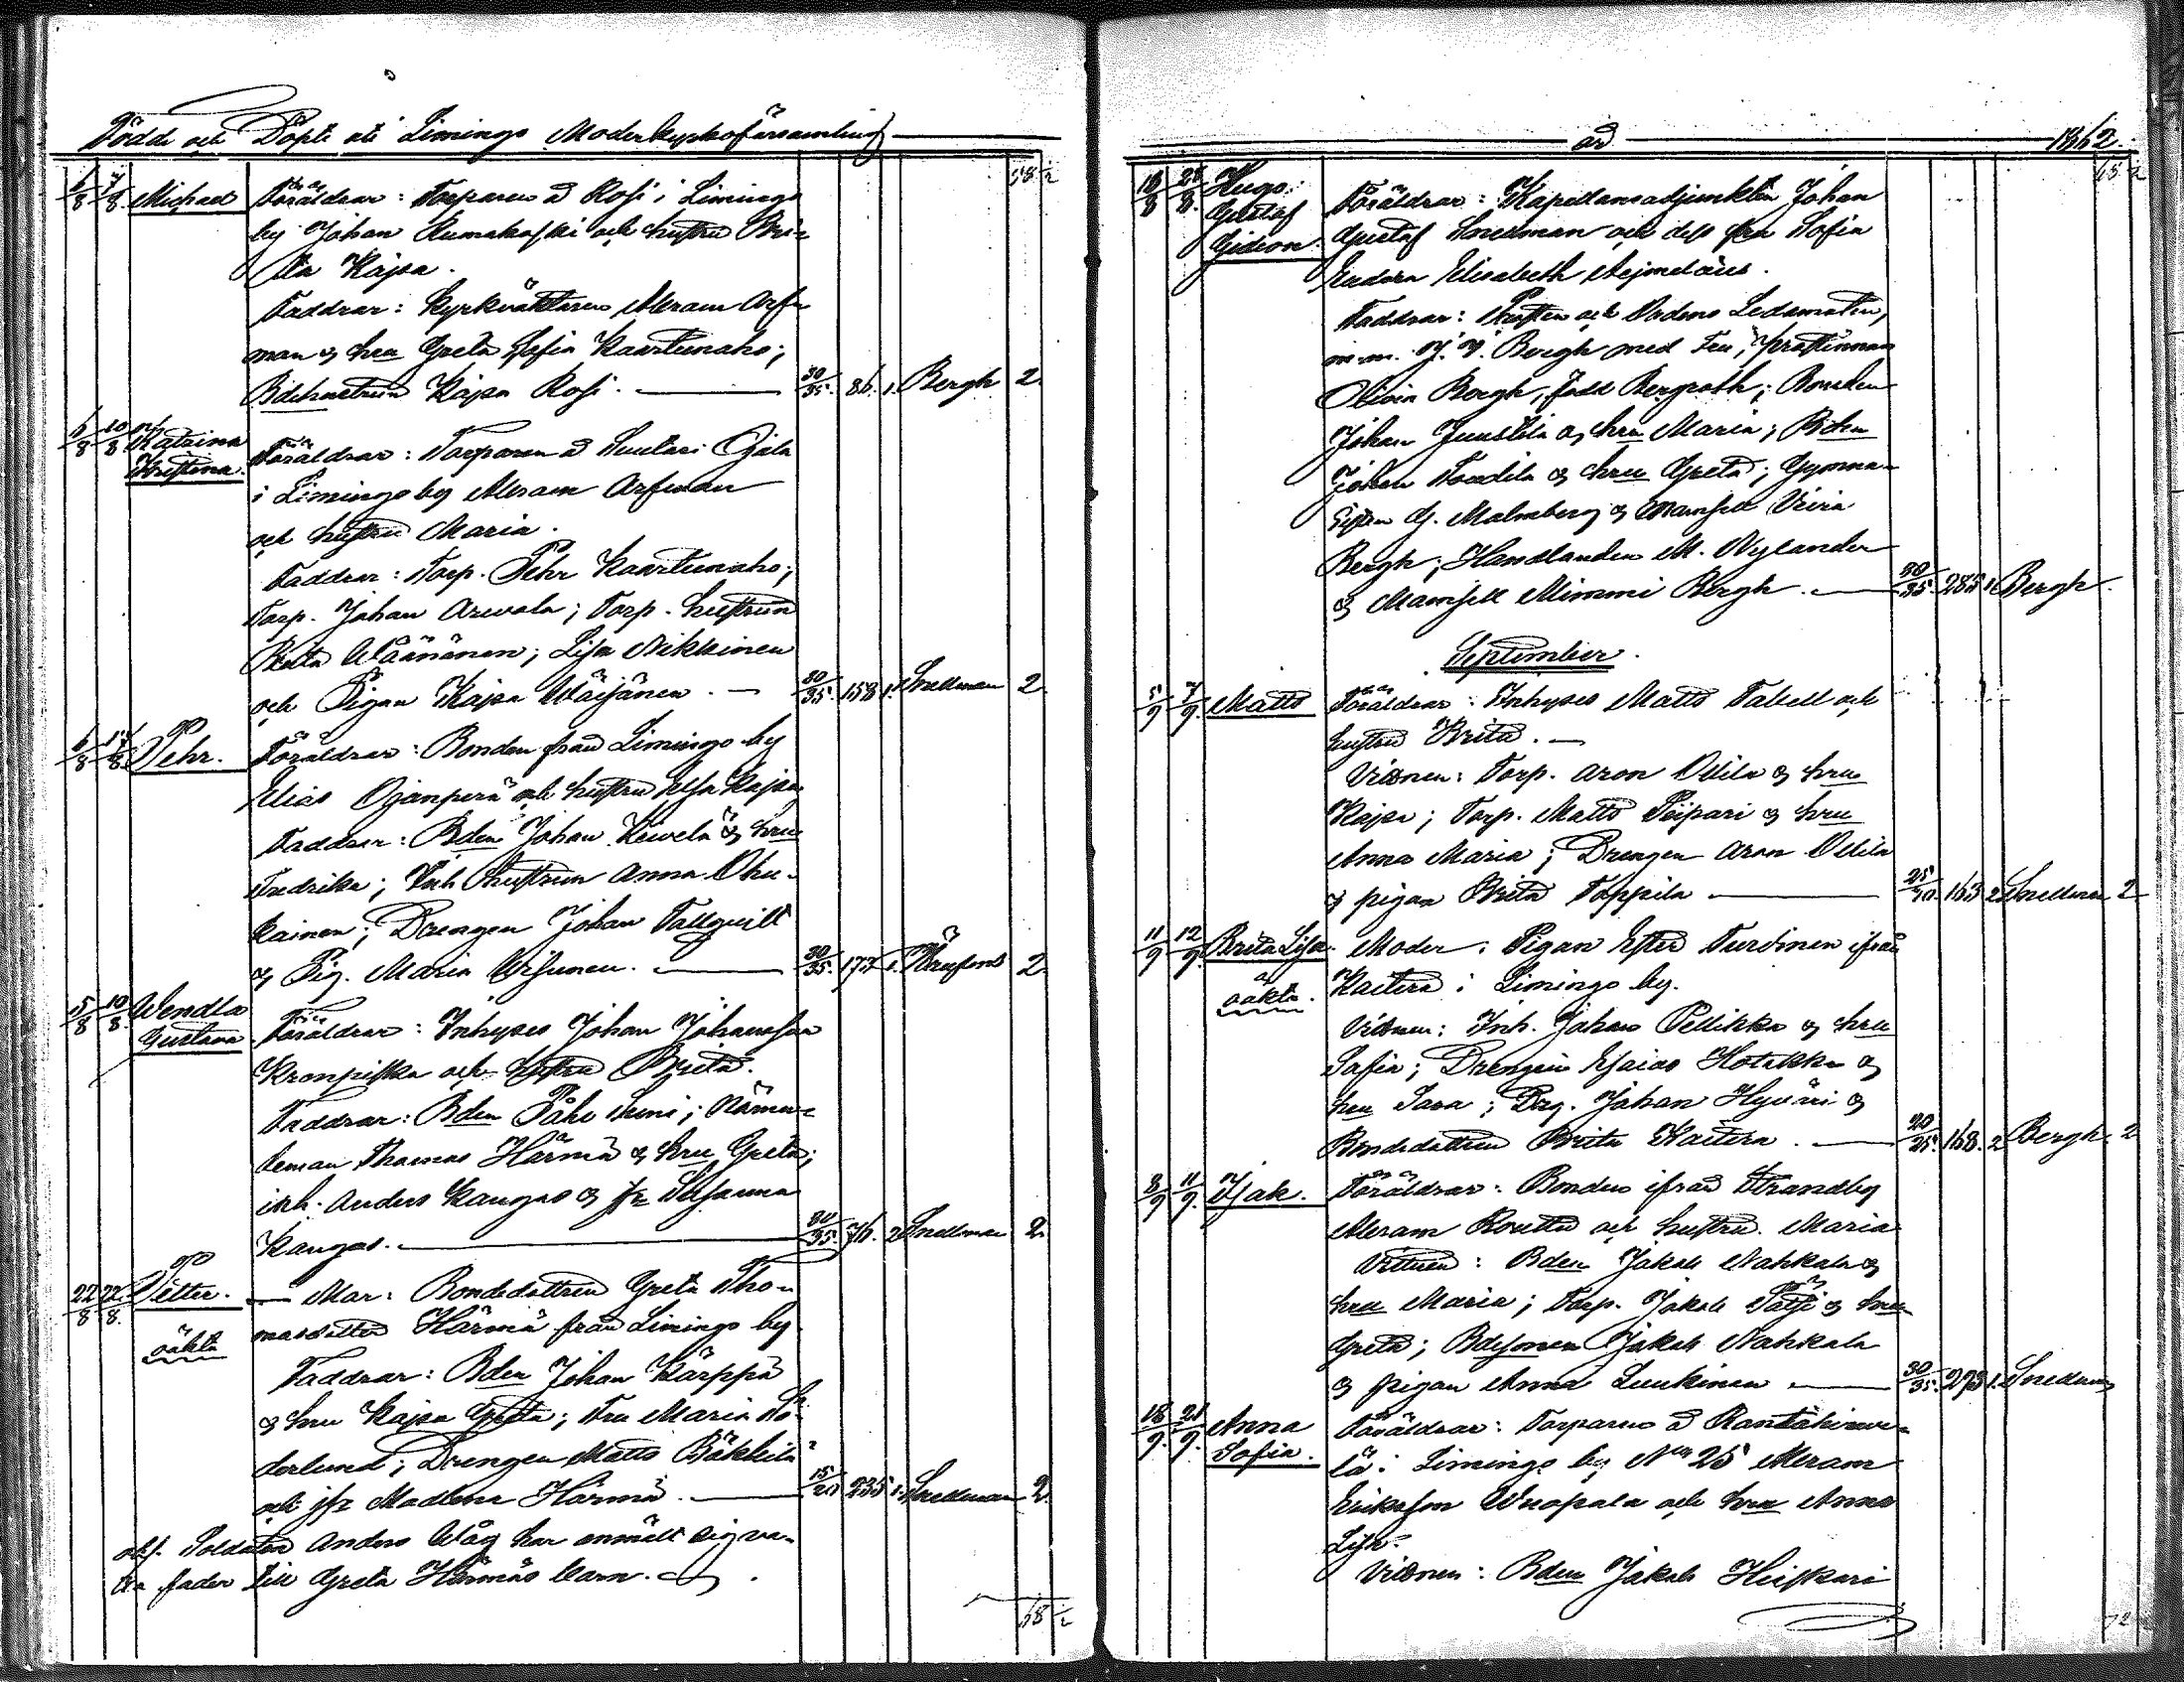 Födde och Döpte uti Limingo Moderkyrkoförsamling
58 1/2
6/8 7/8 Michael Föräldrar: Torparen å Rosi i Limingo
by Johan Kumakoski och hustru Bri-
ta Kajsa.
Faddrar: Kyrkväktaren Abram Arf-
man & hru Greta Sofia Kaartunaho;
Bdehustrun Kajsa Rosi. 30/35. 86. 1. Bergh 2.
6/8 10/8 Katrina Föräldrar: Torparen å Suutari Ojala
Kristina. i Limingo by Abram Arfman
och hustru Maria.
Faddrar: Torp. Pehr Kaartunaho;
Torp. Johan Arvola; Torp. hustrun
Brita Väänänen; Lisa Mikkinen
och Pigan Kajsa Väisänen. 30/35. 158. 1. Snellman 2.
6/8 17/8 Pehr. Föräldrar: Bonden från Limingo by
Elias Ojanperä och hustru Elsa Kajsa
Faddrar: Bden Johan Kewelä & hru
Fredrika; Inh. hustrun Anna Ohu-
kainen; Drengen Johan Tallqvist
& Pig. Maria 30/35. 177 1. 2
5/8 10/8 Wendla Föräldrar: Inhyses Johan Johansson
Gustava Kronpiska och hustru Brita.
Faddrar: Bden Påhl Suni; Nämn-
deman Thomas Härmä & hru Greta;
inh. Anders Kangas & jfr Susanna
Kangas. 30/35. 76. 2 Snellman 2.
22/8 22/8. Petter. Mor: Bondedottren Greta Tho-
oäkta masdotter Härmä från Limingo by
Faddrar: Bden Johan Kärppä
& hru Kajsa Greta; Fru Maria Sö-
derlund; Drengen Matts Bäkkilä
och jfr Madlena Härmä. 15/20 235 1. Snellman 2.
obs. Soldaten Anders Våg har anmält sig va-
ra fader till Greta Härmäs barn.
68 1/2
ad 1862.
68 1/2
18/8 28/8. Hugo Föräldrar: Kapellansadjunkten Johan
Gustaf Gustaf Snellman och dess fru Sofia
Gideon. Eudora Elisabeth Aejmelaeus.
Faddrar: Prosten och Ordens Ledamoten,
m.m. J. V. Bergh med Fru, Prostinnan
Olivia Bergh, född Bergroth; Bonden
Johan Juustila & hru Maria; Bden
Johan Tuudila & hru Greta; Gymna-
sisten G. Malmberg & Mamsell Vivia
Bergh; Handlanden M. Nylander
& Mamsell Mimmi Bergh. 30/35. 283 1. Bergh.
September.
5/9 7/9. Matts Föräldrar: Inhyses Matts Tabell och
hustru Brita.
Vittnen: Torp. Aron Ollila & hru
Kajsa; Torp. Matts Piipari & hru
Anna Maria; Drengen Aron Ollila
& pigan Brita Toppila 25/30. 163 2 Snellman 2
11/9 12/9. Brita Lisa. Moder: Pigan Ester Turdinen ifrån
oäkta. Kaitera i Limingo by.
Vittnen: Inh. Johan Pellikka & hru
Sofia; Drengen Esaias Hotakka &
hru Sara; Drg. Johan Hyväri &
Bondedottren Brita Kaitera. 20/25. 168. 2 Bergh. 2
8/9 11/9. Isak. Föräldrar: Bonden ifrån Strandby
Abram Routtu och hustru Maria
Vittnen: Bden Jakob Nahkala &
hru Maria; Torp. Jakob Pätsi & hru
Greta; Bdesonen Jakob Nahkala
& pigan Anna Luukinen 30/35. 273 1. Snellman
18/9. 21/9. Anna Föräldrar: Torparen å Rantakirwe-
Sofia. lä i Limingo by No 25 Abram
Eriksson Wuopala och hru Anna
Lisa.
Vittnen: Bden Jakob Heiskari
72